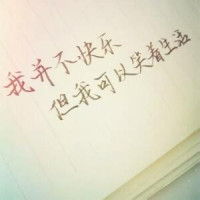 我并不快乐
但我可以笑着生活